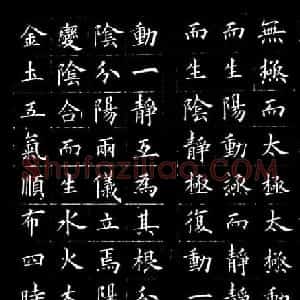 無極而太極太極動
而生陽動極而靜靜
而生陰靜極復動
動一靜互為其根分
陰分陽兩儀立焉
變陰合而生水火木
金土五氣順布四時
Shufaziliao.COM